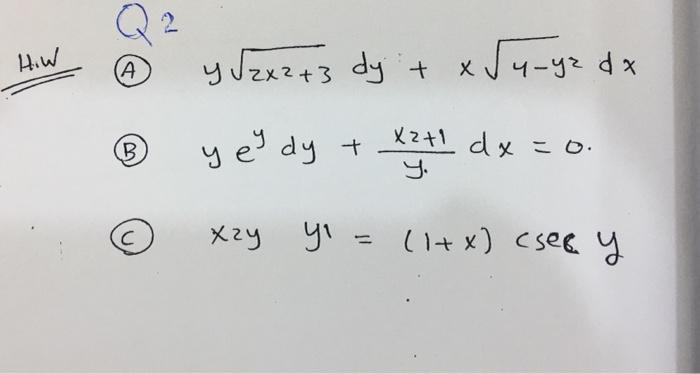 Q2
H.W (A) y√2x2+3 dy + x√4-y2 dx
(B) y e^y dy + x2+1/y. dx = 0.
(C) x2y y1 = (1+x) csec y